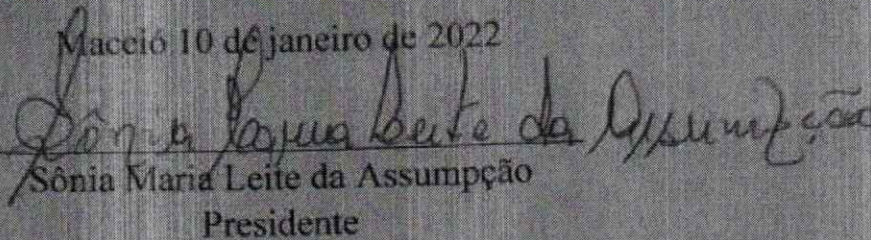 Maceió 10 de janeiro de 2022
Sônia Maria Leite da Assumpção
Sônia Maria Leite da Assumpção
Presidente